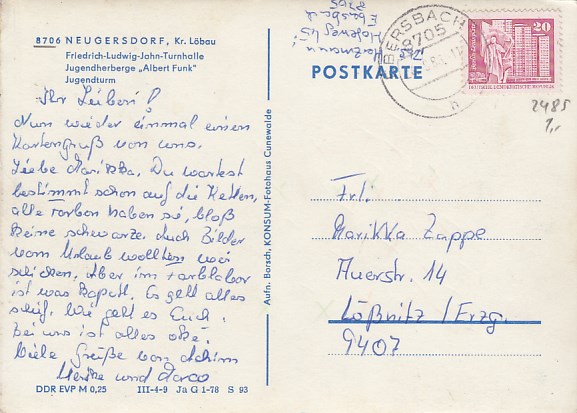 8706 NEUGERSDORF, Kr. Löbau
Friedrich-Ludwig-John-Turnhalle
Jugendherberge „Albert Funk"
Jugendturm
Ihr Lieben!
Nun wieder einmal einen
Kartengruß von uns.
Liebe Marikka. Du wartest
bestimmt schon auf die Ketten,
alle Farben haben sie, bloß
keine schwarze. Auch Bilder
vom Urlaub wollten wir
schicken. Aber im Farblabor
ist was kaputt. Es geht alles
schief. Wie geht es Euch.
Bei uns ist alles oke.
Viele Grüße von Achim
Heike und Marco
DDR EVP M 0,25 III-4-9 Ja G 1-78 S 93
Aufn. Borsch, KONSUM-Fotohaus Cunewalde
Ebersbach
8705
EBERSBACH
8705
h
20
DEUTSCHE DEMOKRATISCHE REPUBLIK
POSTKARTE
2485
1,-
Frl.
Marikka Zappe
Auerstr. 14
Lößnitz / Erzg.
9407